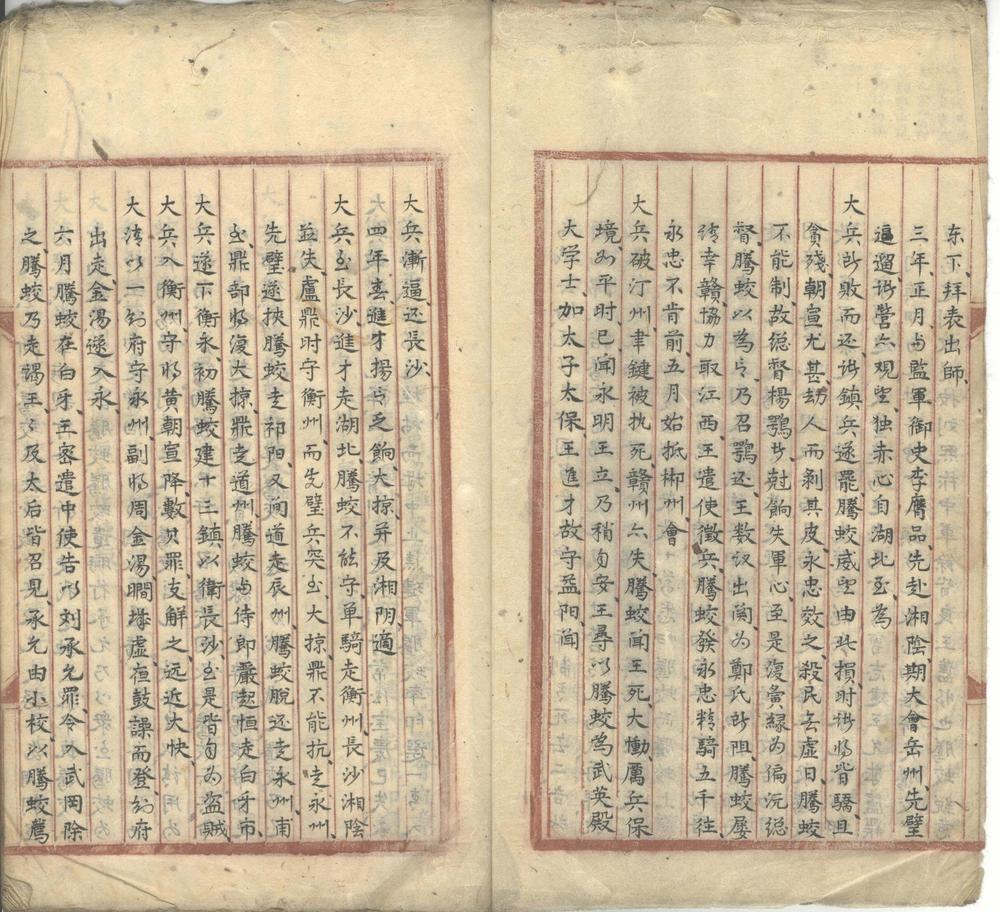 东下、拜表出師、
三年、正月与監軍御史李膺品先赴湘陰期大會岳州、先璧
逼遛、诸营亦观望、独赤心自湖北至、為
大兵所敗而还、诸鎮兵遂罷、騰蛟威望由此損、时诸将皆驕且
貪殘、朝宣尤甚、劫人而剥其皮、永忠效之、殺民无虚日、騰蛟
不能制、故总督楊鶚、剋餉失軍心、至是復夤緣為偏沅总
督、騰蛟以為言、乃召鶚还、王数议出閩、為鄭氏所阻、騰蛟屡
请幸贛協力取江西、王遣使徵兵、騰蛟發永忠精騎五千往、
永忠不肯前、五月始抵郴州、會
大兵破汀州、聿鍵被执死、贛州亦失、騰蛟闻王死大慟、厲兵保
境、如平时、已闻永明王立、乃稍自安、王尋以騰蛟為武英殿
大学士、加太子太保、王進才故守益阳、闻
大兵漸逼、还長沙、
四年春、進才揚言乏餉、大掠并及湘阴、適
大兵至長沙、進才走湖北、騰蛟不能守、单騎走衡州、長沙湘陰
並失、盧鼎时守衡州、而先璧兵突至大掠、鼎不能抗、走永州、
先璧遂挾騰蛟走祁阳、又间道走辰州、騰蛟脱还、走永州、甫
至、鼎部将復大掠、鼎走道州、騰蛟与侍郎嚴起恒走白牙市、
大兵遂下衡永、初騰蛟建十三鎮、以衛長沙、至是皆自為盗賊、
大兵入衡州、守将黄朝宣降、數其罪支解之、远近大快、
大清以一知府守永州、副将周金湯瞷城虚、夜鼓譟而登、知府
出走、金湯遂入永、
六月、騰蛟在白牙、王密遣中使告以刘承允罪、令入武冈除
之、騰蛟乃走謁王、王及太后皆召見、承允由小校、以騰蛟薦